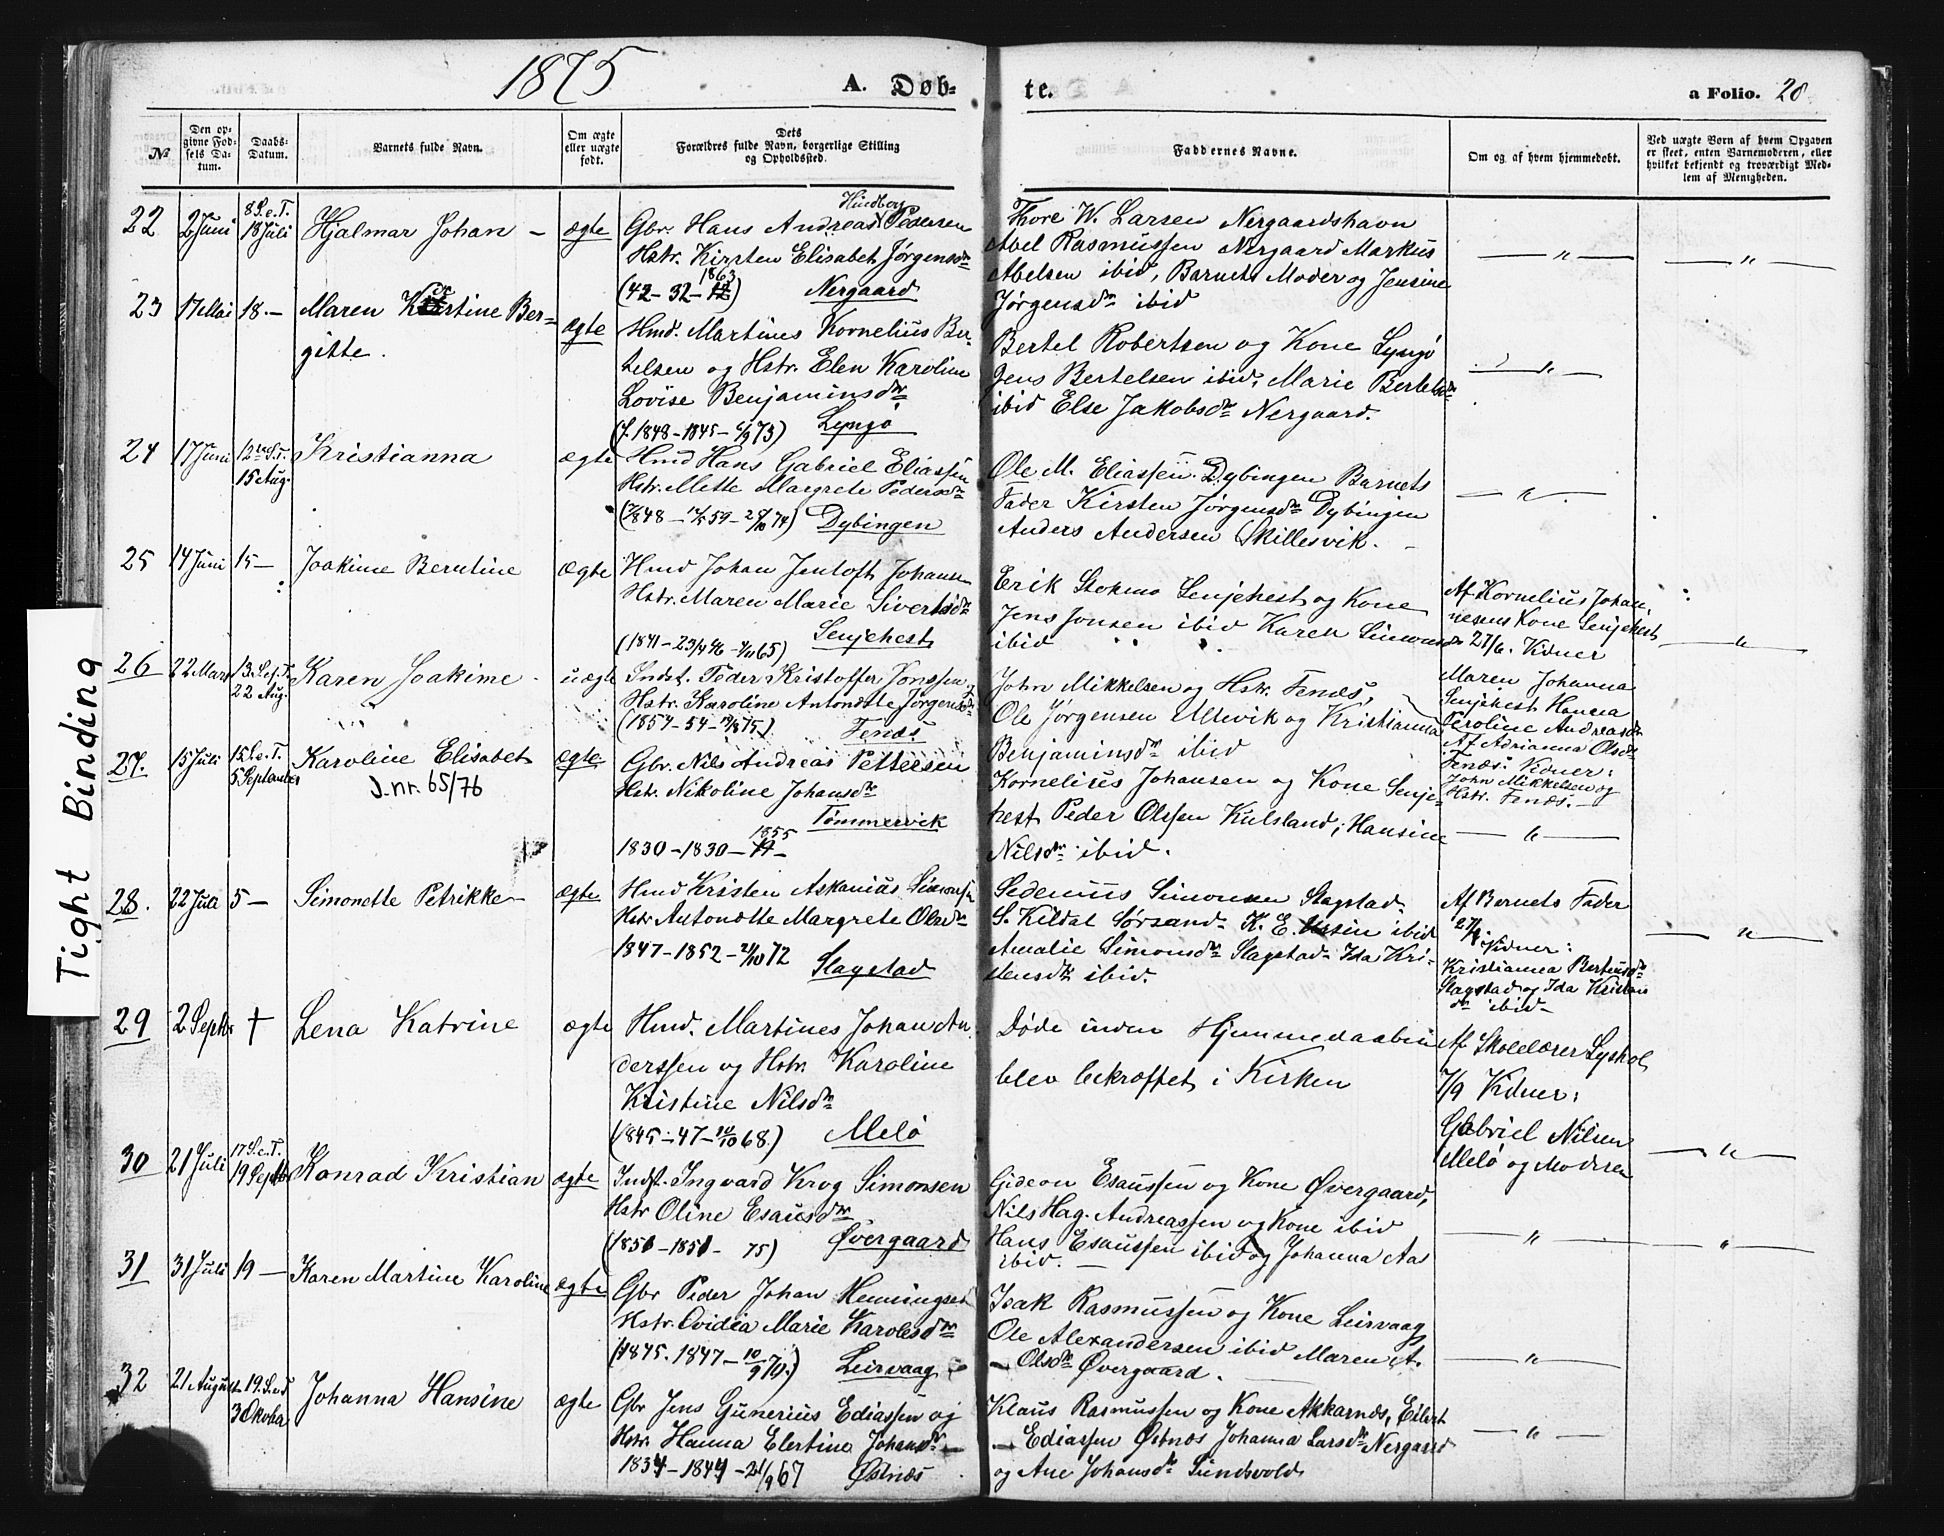 1875
A. Døb-
te.
a Folio. 28
№
Den op-
givne Fød-
sels Da-
tum.
Daabs-
Datum.
Barnets fulde Navn.
Om ægte
eller uægte
født.
Dets
Forældres fulde Navn, borgerlige Stilling
og Opholdssted.
Faddernes Navne.
Om og af hvem hjemmedøbt.
Ved uægte Børn af hvem Opgaven
er skeet, enten Barnemoderen, eller
hvilket bekjendt og troværdigt Med-
lem af Menigheden.
22
2 Juni
8 S. e. T.
18 Juli
Hjalmar Johan –
ægte
Gbr. Hans Andreas Pedersen
Hstr. Kirsten Elisabet Jørgensdr
1863
(42 – 32 – ) Nergaard
Thore W. Larsen Nergaardshavn
Abel Rasmussen Nergaard Markus
Abelsen ibid, Barnets Moder og Jensine
Jørgensdr ibid
— " —
— " —
23
17 Mai
18 –
Maren Kirstine Ber-
gitte.
ægte
Hmd. Martines Kornelius Ber-
telsen og Hstr. Elen Karoline
Lovise Benjaminsdr
(f. 1848 – 1845 – 6/9 73) Lyngø
Bertel Robertsen og Kone Lyngø
Jens Bertelsen ibid, Marie Bertelsdr
ibid Else Jakobsdr Nergaard.
— " —
24
17 Juni
12te S. T.
15 Aug.
Kristianna
ægte
Hmd Hans Gabriel Eliassen
Hstr. Mette Margrete Pedersdr
Dybingen
Ole M. Eliassen Dybingen Barnets
Fader Kirsten Jørgensdr Dybingen
Anders Andersen Skillesvik. –
— " —
25
14 Juni
15 –
Joakime Berntine
ægte
Hmd Johan Jentoft Johansen
Hstr. Maren Marie Sivertsdr
Senjehest
Erik Stokmo Senjehest og Kone
Jens Jonsen ibid Karen Simonsdr
ibid
Af Kornelius Johan-
nesens Kone Senjehest
27/6. Vidner
Maren Johanna
Senjehest Hanna
Peroline Andreasdr
— " —
26
22 Mars
13 S. ef. T.
22 Aug.
Karen Joakime –
uægte
Indst. Peder Kristoffer Jonssen og
Hstr. Karoline Antonette Jørgensdr
Fenæs
John Mikkelsen og Hstr. Fenæs,
Ole Jørgensen Ulevik og Kristianna
Benjaminsdr ibid
Af Adrianna Olsdr
Fenæs. Vidner:
John Mikkelsen og
Hstr. Fenæs. –
27.
15 Juli
15 S. e. T.
5 September
Karoline Elisabet
J.nr. 65/76
ægte
Gbr. Nils Andreas Pettersen
Hstr. Nikoline Johansdr
Tømmervik
1855
1830 – 1830 –
Kornelius Johansen og Kone Senje-
hest Peder Olssen Kulsland, Hansine
Nilsdr ibid.
— " —
28.
22 Juli
5 –
Simonette Petrikke –
ægte
Hmd Kristen Askanius Simonsen
Hstr Antonette Margrete Olsdr –
1847 – 1852 – 21/10 72
Slagstad
Sedenius Simonsen Slagstad.
S. Kildal Sørsand. K. E. ibid
Amalie Simonsdr Slagstad. Ida Kri-
stensdr ibid.
Af Barnets Fader
Vidner:
Kristianna Berteusdr
Slagstad og Ida Kristens
dr ibid –
— " —
29
2 Septbr
†
Lena Katrine
ægte
Hmd. Martines Johan An-
derssen og Hstr Karoline
Kristine Nilsdr
(1845 – 47 – 10/10 68.) Melø
Døde inden Hjemmedaaben
blev bekræftet i Kirken
Af Skolelærer Lyshol
7/9 Vidner:
Gabriel Nilsen
Melø og Moderen
— " —
30
21 Juli
17 S. e. T.
19 Septbr
Konrad Kristian
ægte
Indst. Ingvard Krog Simonsen
Hstr Oline Esausdr
(1851 – 1851 – 75) Øvergaard
Gideon Esaussen og Kone Øvergaard,
Nils Hag. Andreassen og Kone ibid
Hans Esaussen ibid og Johanna Aas
ibid. —
— " —
— " —
31
31 Juli
19 –
Karen Martine Karoline
ægte
Gbr Peder Johan Henningsen
Hstr. Ovidia Marie Karolesdr
(1845. 1847 – 10/9 70.) Leirvaag
Isak Rasmussen og Kone Leirvaag
Ole Alexandersen ibid Maren A.
– Olsdr Øvergaard. –
— " —
32
21 August
19. S.
3 Oktober
Johanna Hansine
ægte
Gbr Jens Gunerius Ediassen og
Hstr. Hanna Elertine Johansdr –
1834 – 1844 – 21/9 67 Østnæs
Klaus Rasmussen og Kone Akkarnæs, Eilert
– Ediassen Østnæs Johanna Larsdr Nergaard
og Ane Johansdr Sundsvold
— " —
Tight Binding